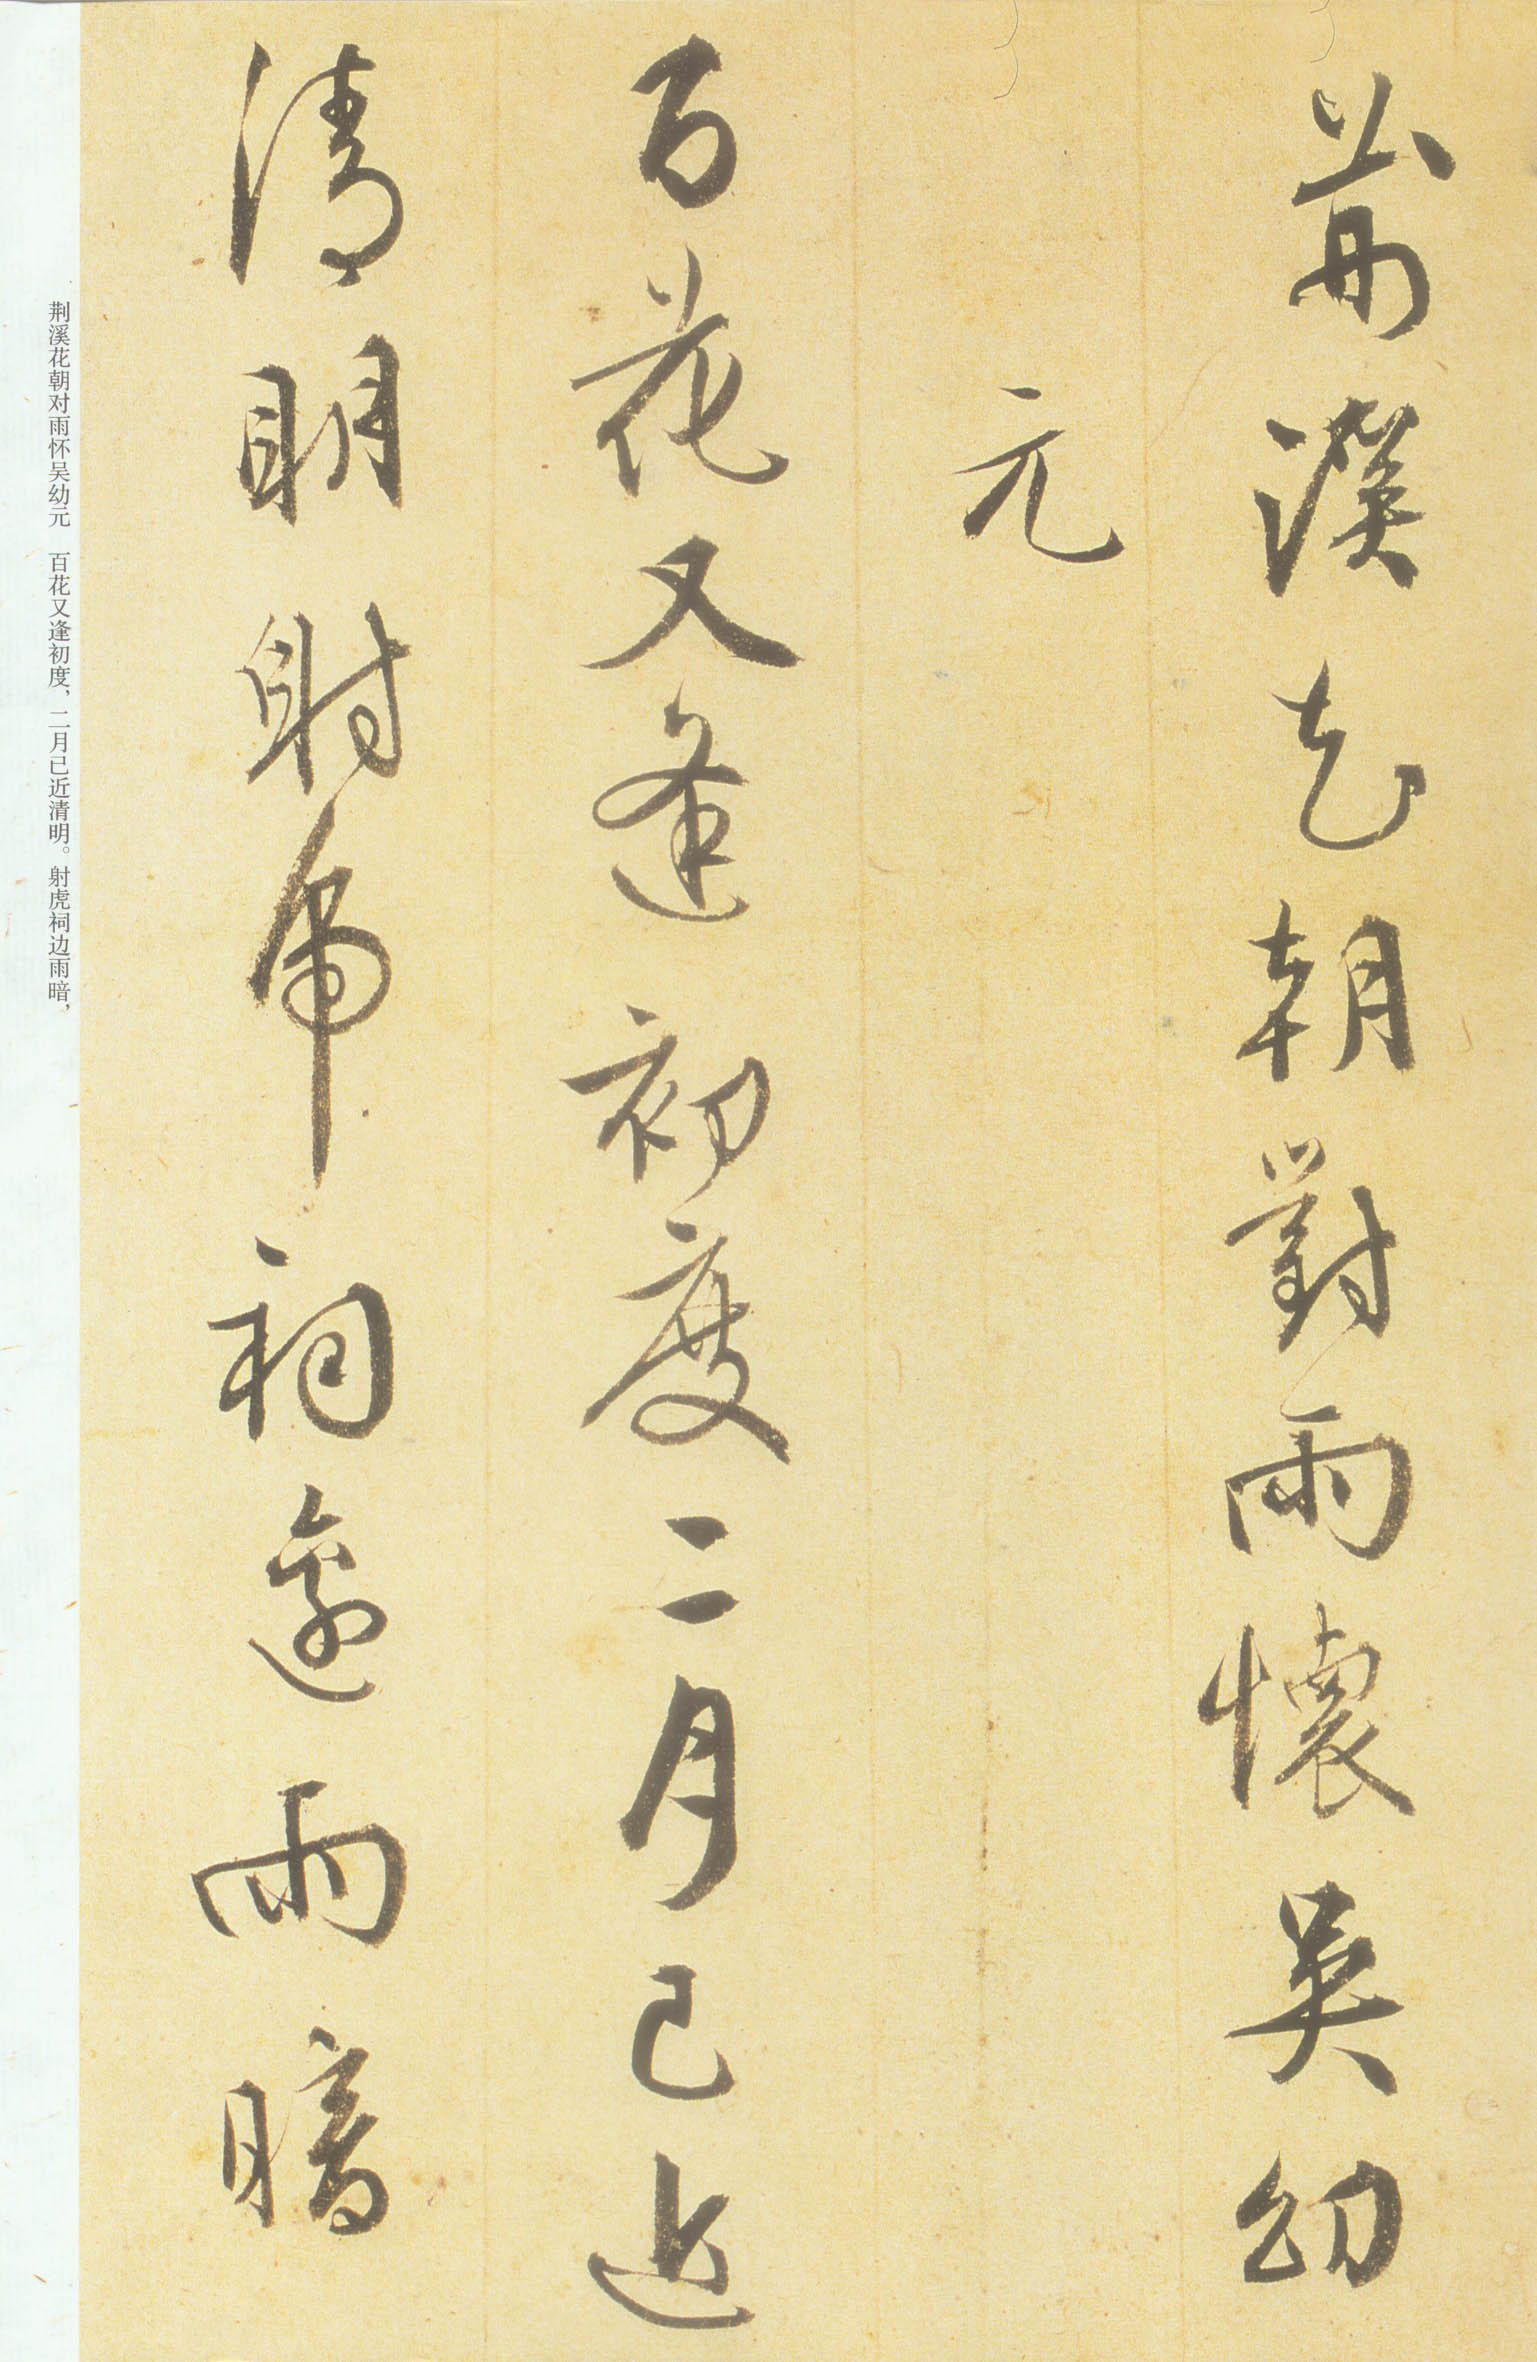 荆溪花朝對雨懷吴幼
元
百花又逢初度二月已近
清明射虎祠邊雨暗
荆溪花朝对雨怀吴幼元　百花又逢初度、二月已近清明。射虎祠边雨暗，